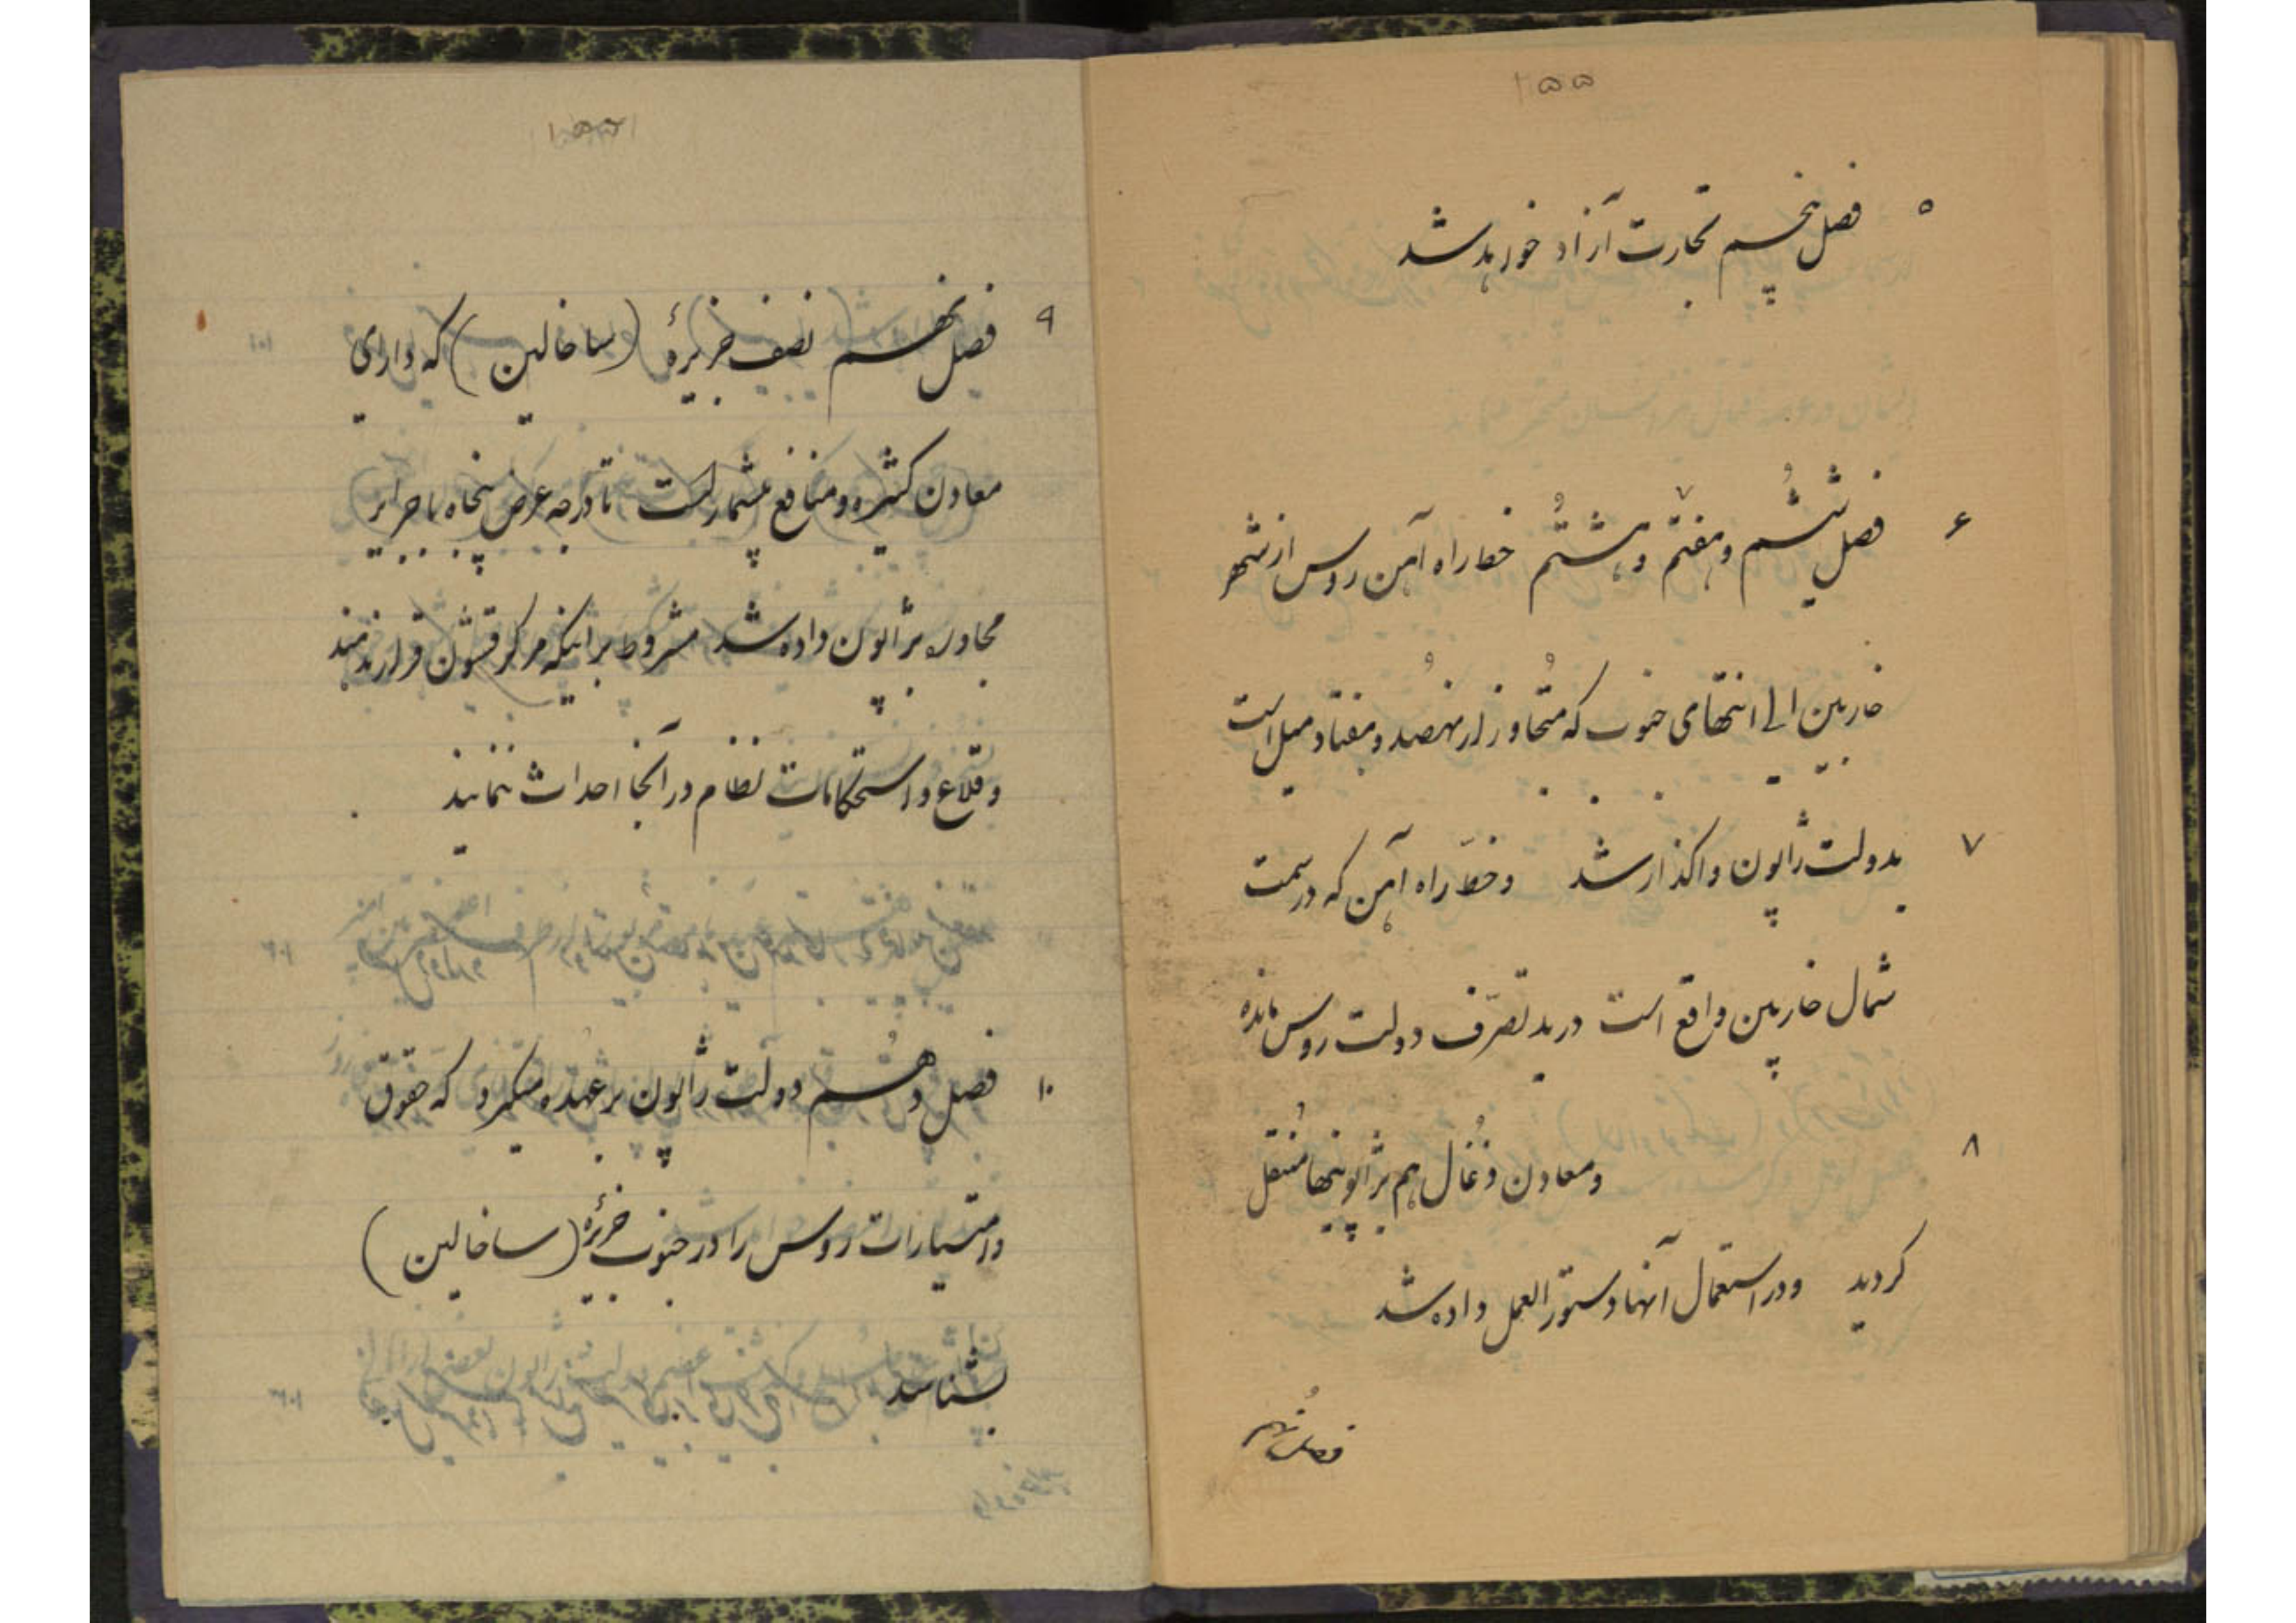 ۱۵۵
۵ فصل پنجم تجارت آزاد خواهد شد
۶ فصل ششم و هفتم و هشتم خط راه آهن روس از شهر
خاربین الی انتهای جنوب که متجاوز از نهصد و هفتاد میل است
۷ بدولت ژاپون واگذار شد و خط راه آهن که در سمت
شمال خاربین واقع است در ید تصرّف دولت روس مانده
۸ و معادن ذغال هم بژاپونیها منتقل
گردید و در استعمال آنها دستور العمل داده شد
فصل نهم
۹ فصل نهم نصف جزیرهٔ (ساخالین) که دارای
معادن کثیره و منافع بیشمار است تا درجه عرض پنجاه با جزایر
مجاوره بژاپون داده شد مشروط بر اینکه مرکز قشون قرار ندهند
و قلاع و استحکامات نظام در آنجا احداث ننمایند
۱۰ فصل دهم دولت ژاپون بر عهده میگیرد که حقوق
و امتیازات روس را در جنوب جزیرهٔ (ساخالین)
بشناسد